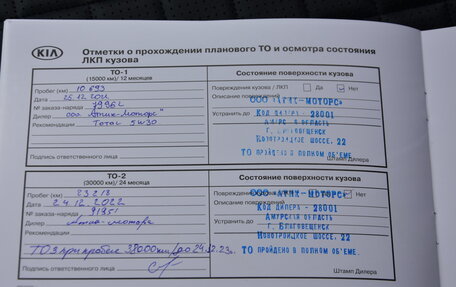 KIA
Отметки о прохождении планового ТО и осмотра состояния
ЛКП кузова
ТО-1
(15000 км)/ 12 месяцев
Состояние поверхности кузова
Пробег (км) 10 693
Повреждения кузова / ЛКП Да Нет
Дата 25.12.2021
Описание повреждений
№ заказа-наряда
Дилер ооо "Атик-Моторс"
Рекомендации Тотас 5W30
Устранить до
ООО «АТИК-МОТОРС»
КОД ДИЛЕРА - 28001
АМУРСКАЯ ОБЛАСТЬ
Г. БЛАГОВЕЩЕНСК
НОВОТРОИЦКОЕ ШОССЕ, 22
ТО ПРОЙДЕНО В ПОЛНОМ ОБ'ЕМЕ.
Подпись ответственного лица
Штамп Дилера
ТО-2
(30000 км)/ 24 месяца
Состояние поверхности кузова
Пробег (км) 23218
Повреждения Нет
Дата 24.12.2022
Описание
№ заказа-наряда 91951
Дилер Атик-моторс
Устранить до
Рекомендации
ООО «АТИК-МОТОРС»
КОД ДИЛЕРА - 28001
АМУРСКАЯ ОБЛАСТЬ
Г. БЛАГОВЕЩЕНСК
НОВОТРОИЦКОЕ ШОССЕ, 22
ТО ПРОЙДЕНО В ПОЛНОМ ОБ'ЕМЕ.
ТО3 при пробеге 38000км/до 24.12.23г
Подпись ответственного лица
Штамп Дилера